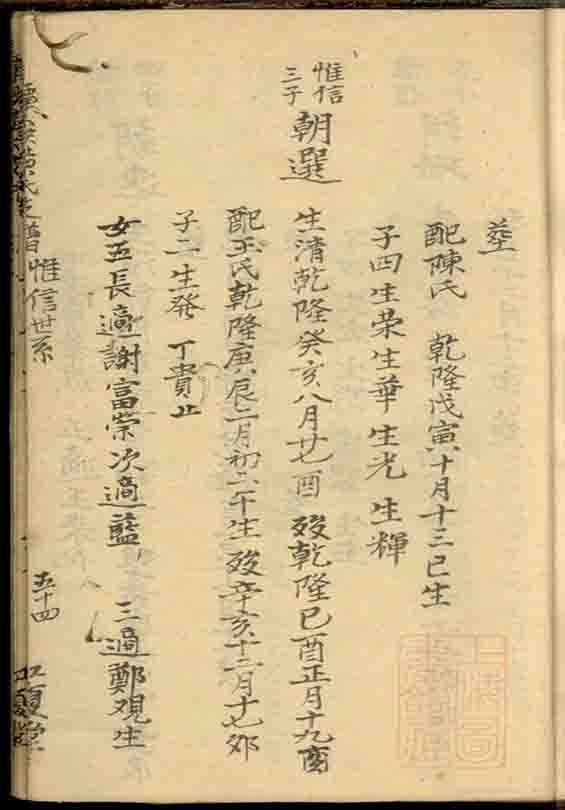 葬
配陳氏 乾隆戊寅十月十三巳生
子四生荣生華生光生輝
惟信
三子
朝選
生清乾隆癸亥八月廿七酉 殁乾隆己酉正月十九
配玉氏乾隆庚辰二月初六午生殁辛亥十二月十七卯
子二生發 丁貴止
女五長適謝富榮次適藍 三適鄭观生
黄氏支譜 惟信世系 五十四